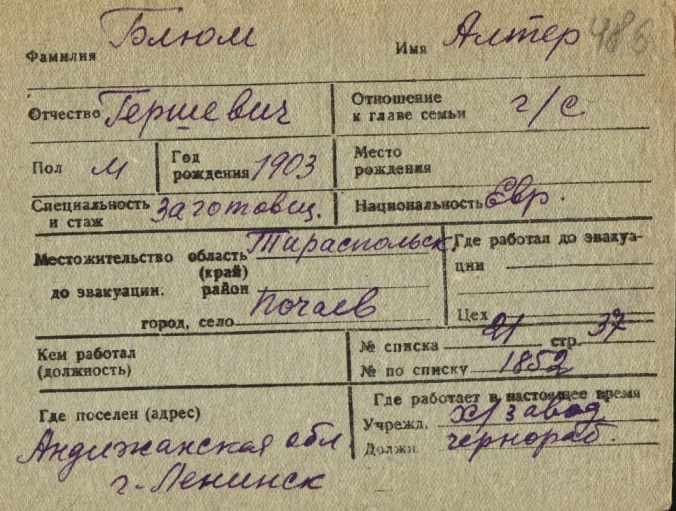 Фамилия Блюм Имя Алтер 486
Отчество Гершевич Отношение к главе семьи г/с
Пол М Год рождения 1903 Место рождения
Специальность и стаж Заготовщ. Национальность Евр.
Местожительство область (край) Тираспольск. Где работал до эвакуа-
до эвакуации. район ции
город, село Почаев Цех
Кем работал (должность) № списка 21 стр. 37
№ по списку 1852
Где поселен (адрес) Где работает в настоящее время
Андижанская обл Учрежд. х/завод
г. Ленинск Должн. чернораб.